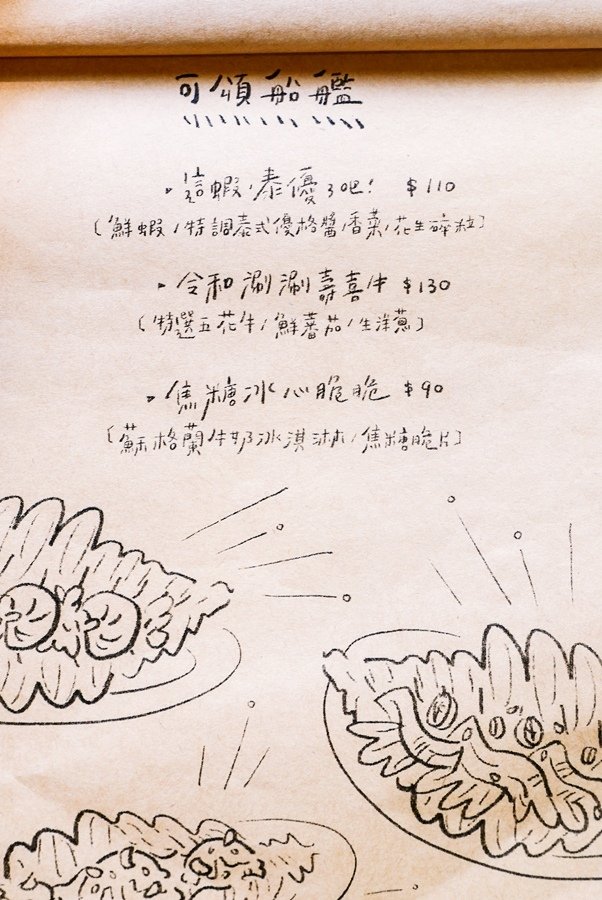 可頌船艦
這蝦,泰優了吧! $110
(鮮蝦/特調泰式優格醬/香菜/花生碎粒)
令和涮涮壽喜牛 $130
(特選五花牛/鮮蕃茄/生洋蔥)
焦糖冰心脆脆 $90
(蘇格蘭牛奶冰淇淋/焦糖脆片)